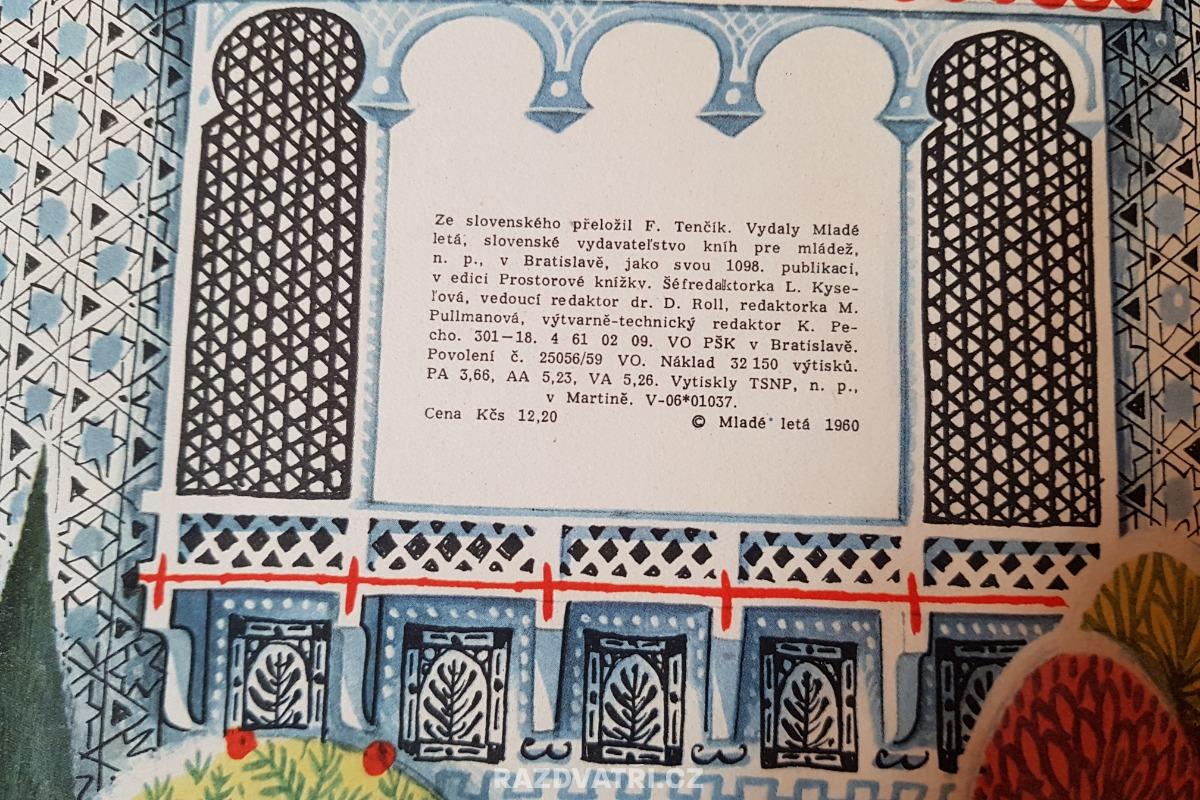 Ze slovenského přeložil F. Tenčík. Vydaly Mladé
letá, slovenské vydavateľstvo kníh pre mládež,
n. p., v Bratislavě, jako svou 1098. publikaci,
v edici Prostorové knížky. Šéfredaktorka L. Kyse-
ľová, vedoucí redaktor dr. D. Roll, redaktorka M.
Pullmanová, výtvarně-technický redaktor K. Pe-
cho. 301—18. 4 61 02 09. VO PŠK v Bratislavě.
Povolení č. 25056/59 VO. Náklad 32 150 výtisků.
PA 3,66, AA 5,23, VA 5,26. Vytiskly TSNP, n. p.,
v Martině. V-06*01037.
Cena Kčs 12,20 © Mladé letá 1960
RAZDVATRI.CZ